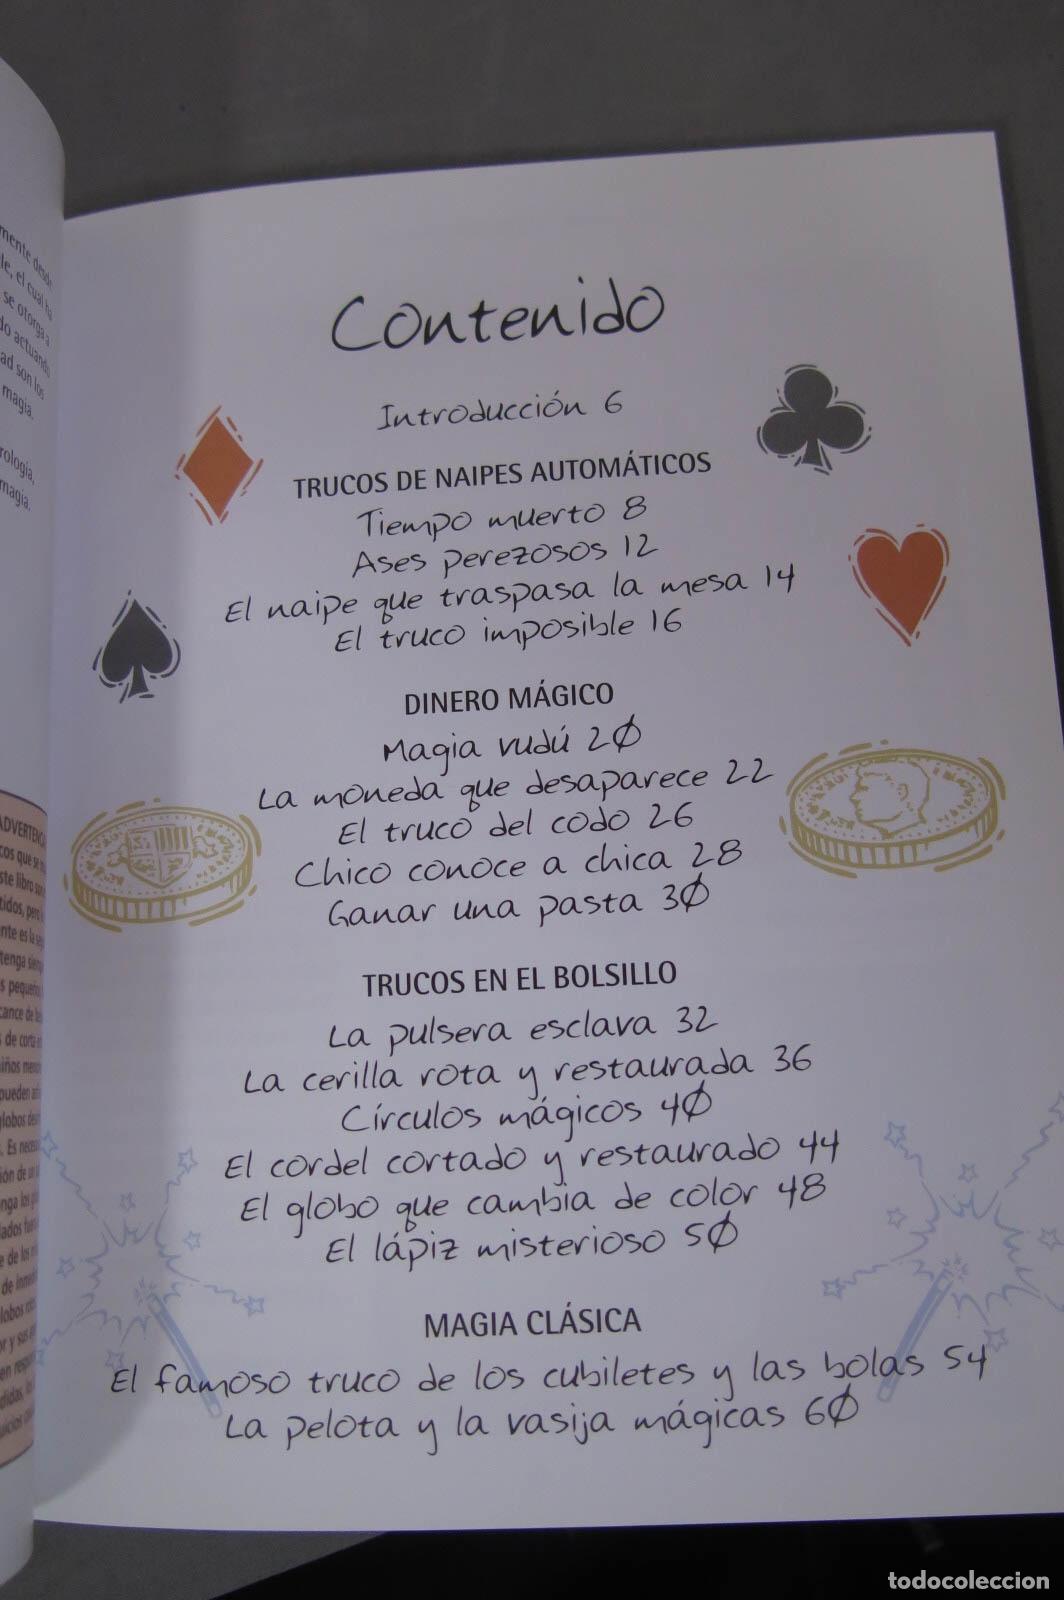 mente desde
le, el cual ha
se otorga a
do actuando
ad son los
magia.
rología,
magia.
Contenido
Introducción 6
TRUCOS DE NAIPES AUTOMÁTICOS
Tiempo muerto 8
Ases perezosos 12
El naipe que traspasa la mesa 14
El truco imposible 16
DINERO MÁGICO
Magia vudú 20
La moneda que desaparece 22
El truco del codo 26
Chico conoce a chica 28
Ganar una pasta 30
TRUCOS EN EL BOLSILLO
La pulsera esclava 32
La cerilla rota y restaurada 36
Círculos mágicos 40
El cordel cortado y restaurado 44
El globo que cambia de color 48
El lápiz misterioso 50
MAGIA CLÁSICA
El famoso truco de los cubiletes y las bolas 54
La pelota y la vasija mágicas 60
todocoleccion